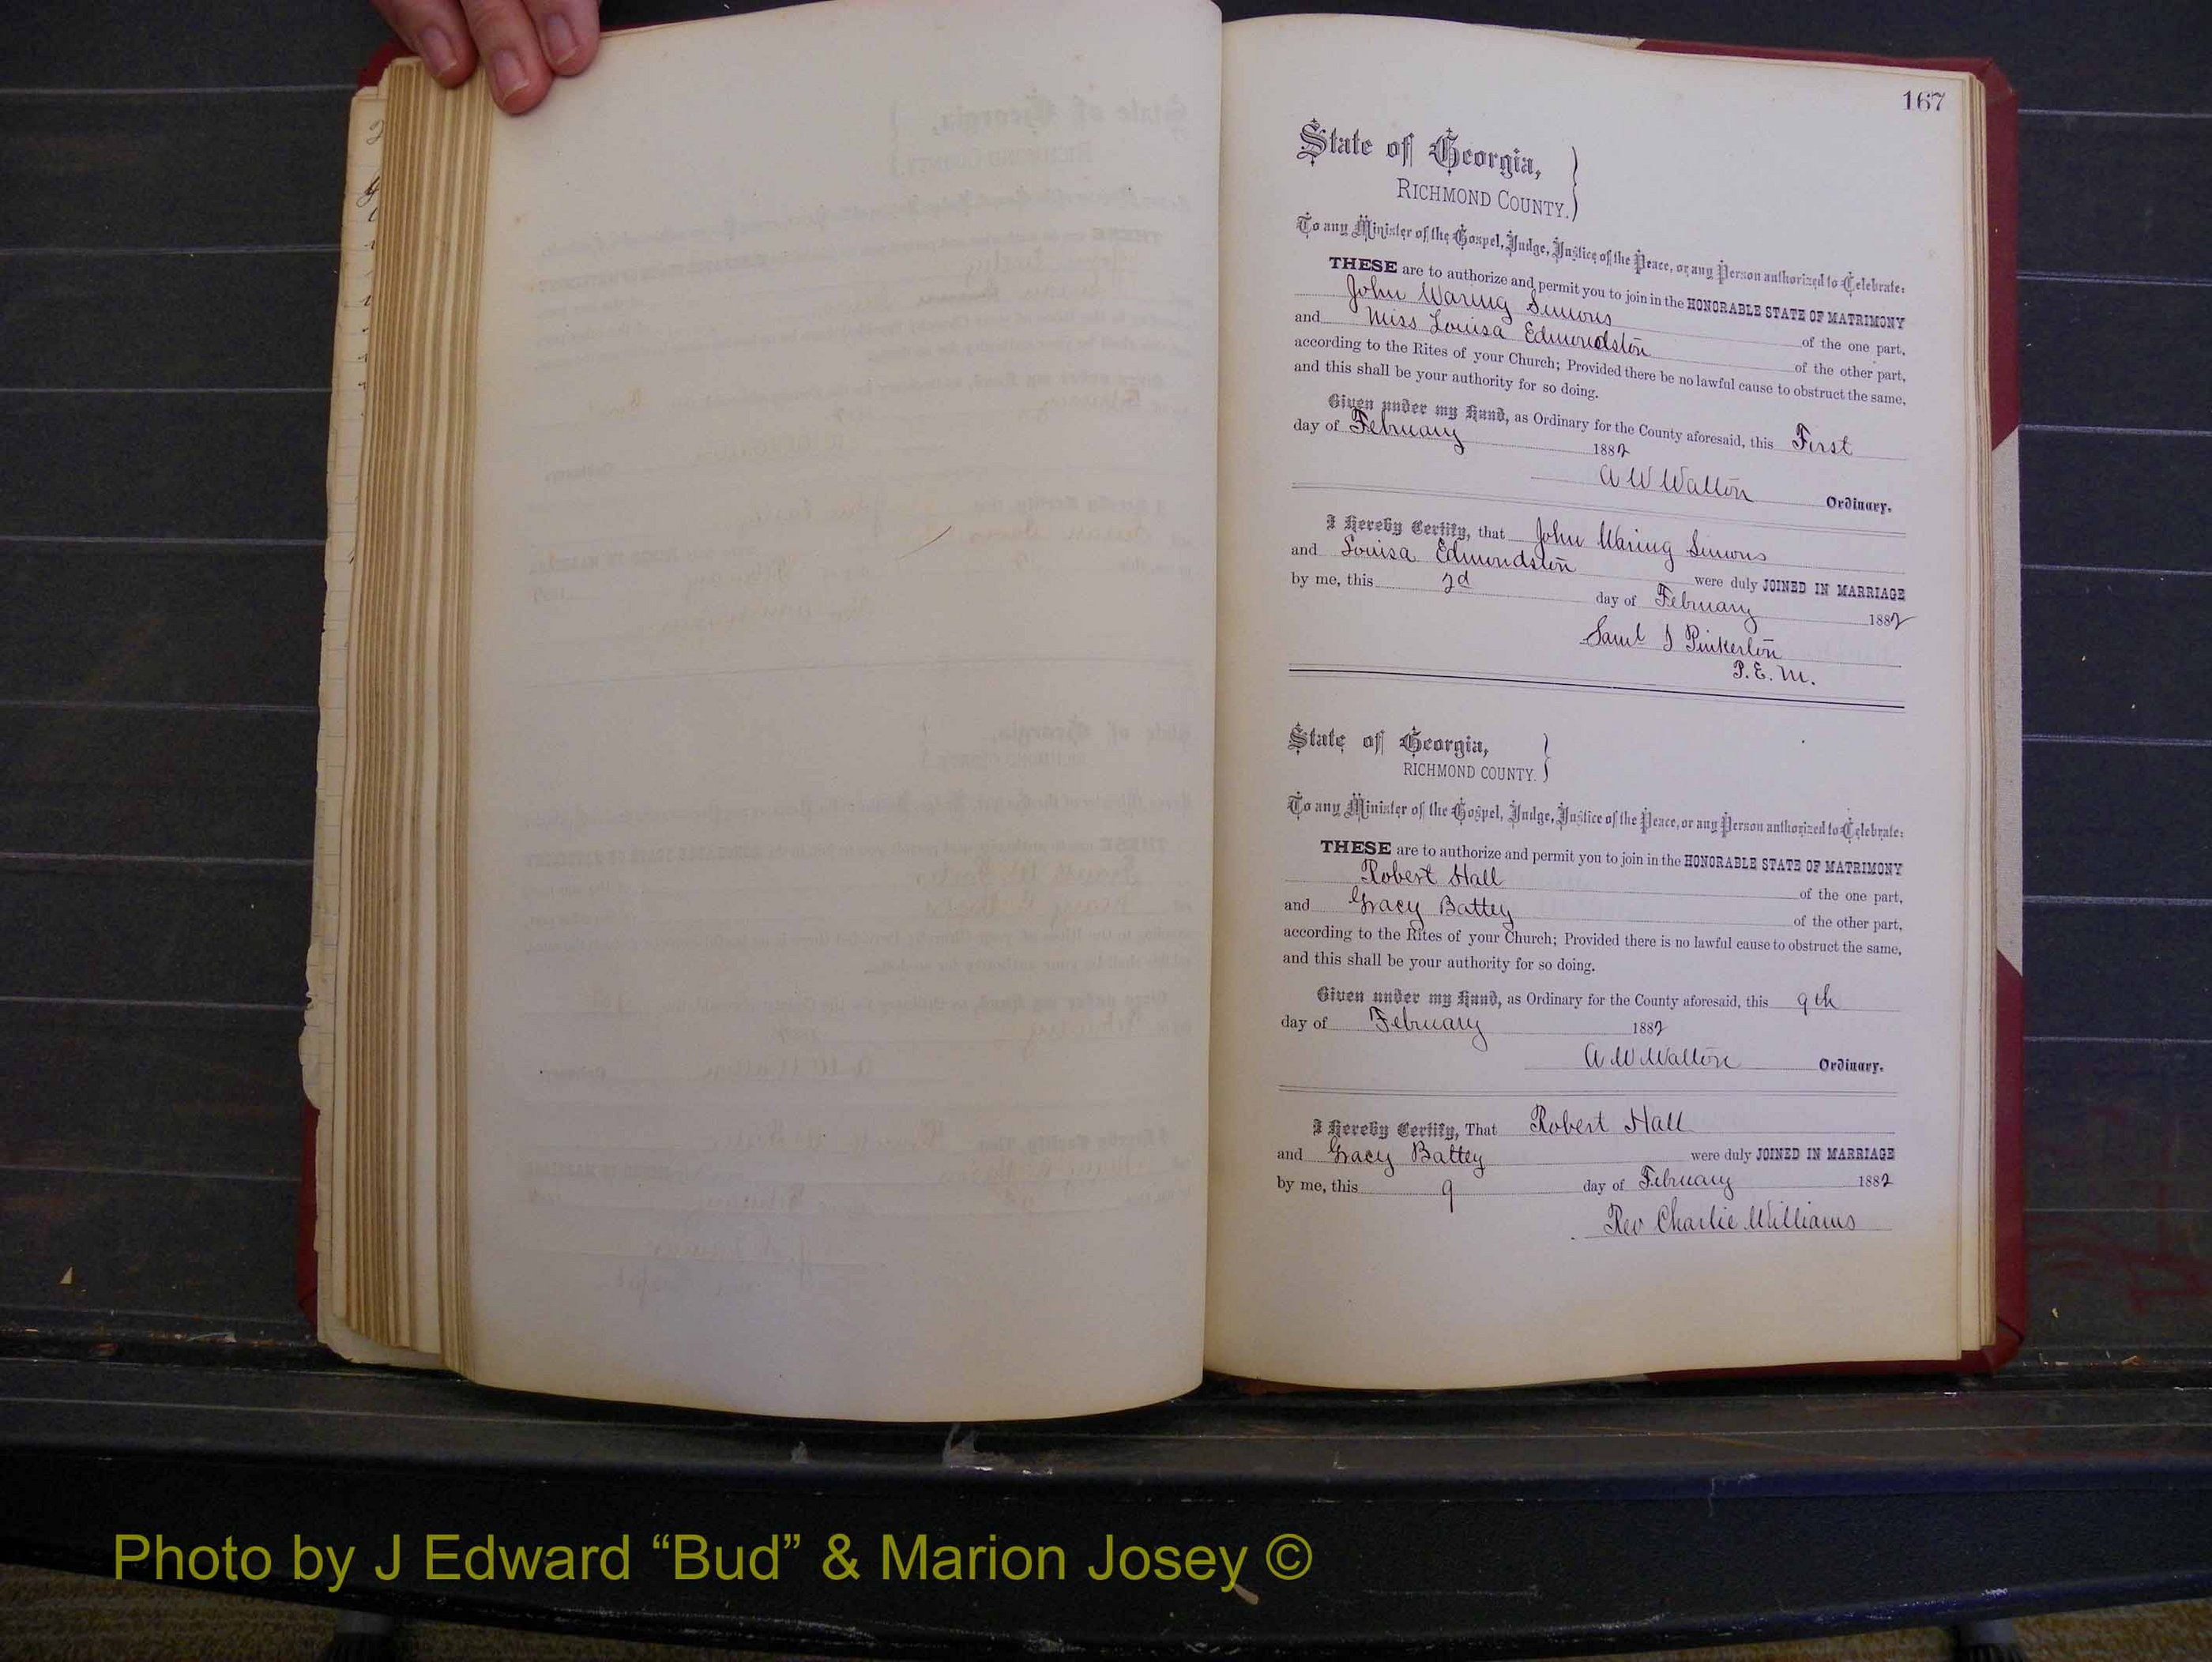 167
State of Georgia,
RICHMOND COUNTY.
To any Minister of the Gospel, Judge, Justice of the Peace, or any Person authorized to Celebrate:
THESE are to authorize and permit you to join in the HONORABLE STATE OF MATRIMONY
John Waring Simons of the one part,
and Miss Louisa Edmondston of the other part,
according to the Rites of your Church; Provided there be no lawful cause to obstruct the same,
and this shall be your authority for so doing.
Given under my Hand, as Ordinary for the County aforesaid, this First
day of February 1882
A W Walton Ordinary.
I Hereby Certify, that John Waring Simons
and Louisa Edmondston were duly JOINED IN MARRIAGE
by me, this 2d day of February 1882
Saml J Pinkerton
P. E. M.
State of Georgia,
RICHMOND COUNTY.
To any Minister of the Gospel, Judge, Justice of the Peace, or any Person authorized to Celebrate:
THESE are to authorize and permit you to join in the HONORABLE STATE OF MATRIMONY
Robert Hall of the one part,
and Gracy Battey of the other part,
according to the Rites of your Church; Provided there is no lawful cause to obstruct the same,
and this shall be your authority for so doing.
Given under my Hand, as Ordinary for the County aforesaid, this 9th
day of February 1882
A W Walton Ordinary.
I Hereby Certify, That Robert Hall
and Gracy Battey were duly JOINED IN MARRIAGE
by me, this 9 day of February 1882
Rev Charlie Williams
Photo by J Edward “Bud” & Marion Josey ©